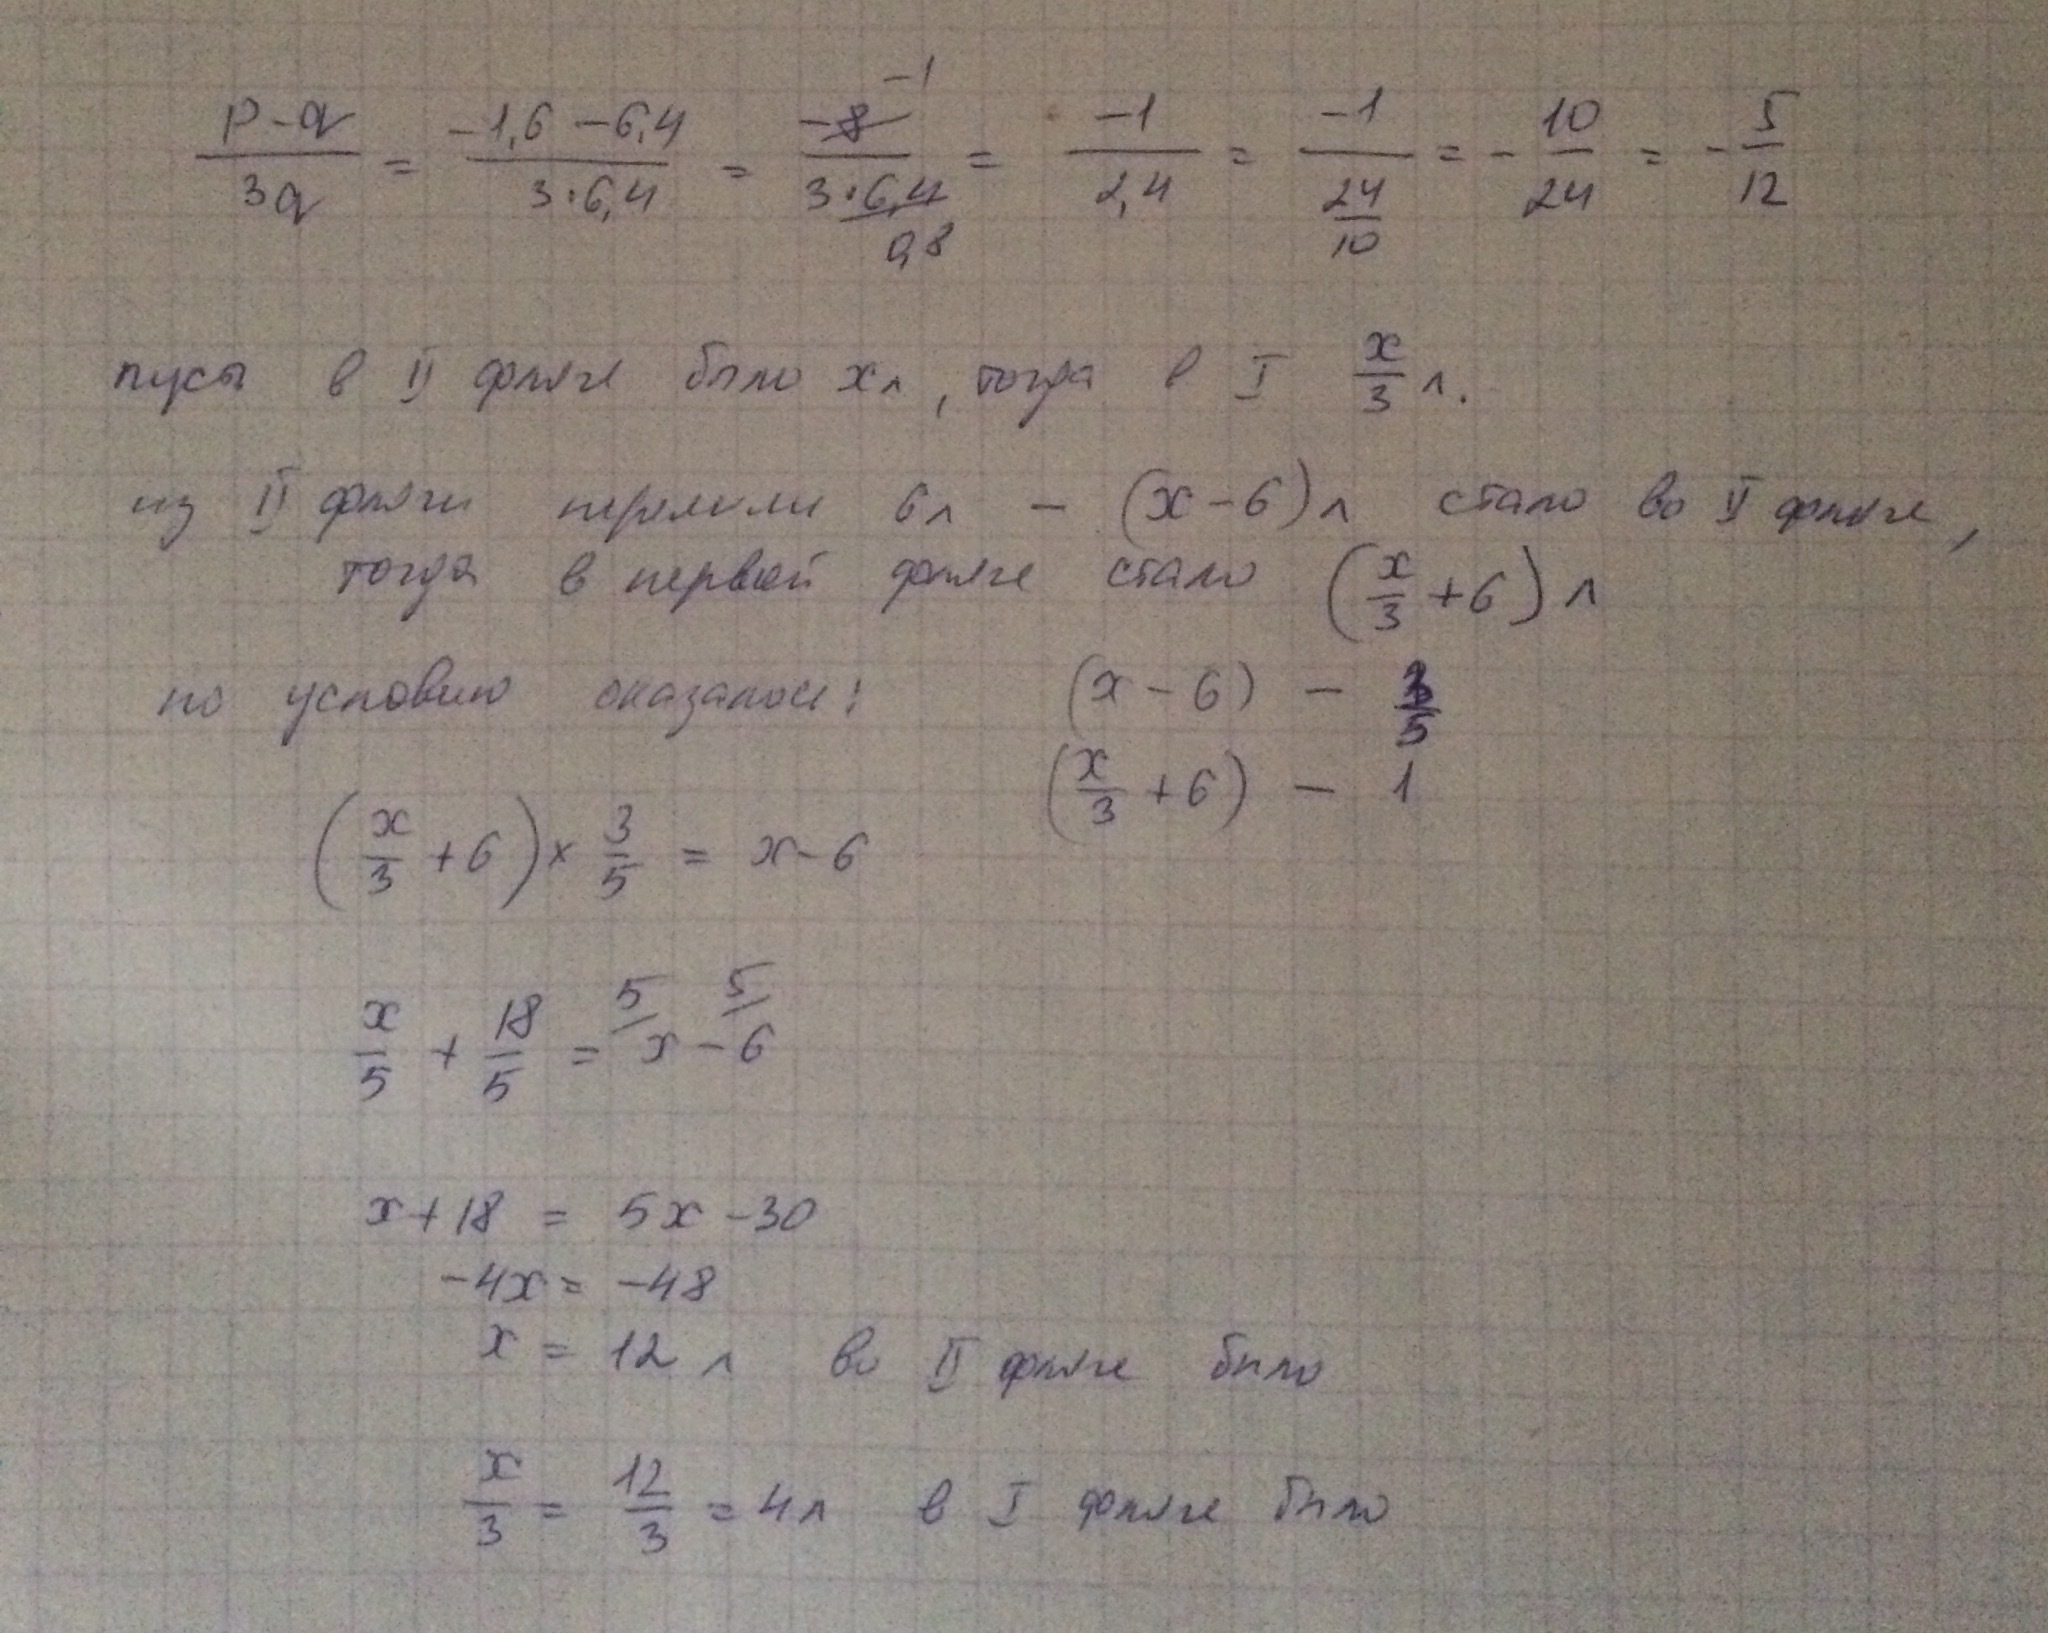 (p-q)/(3q) = (-1,6-6,4)/(3·6,4) = (-8)/(3·6,4) = (-1)/(2,4) = (-1)/(24/10) = -10/24 = -5/12
-1
0,8
пусть в II фляге было x л, тогда в I x/3 л.
из II фляги перелили 6 л - (x-6) л стало во II фляге,
тогда в первой фляге стало (x/3 + 6) л
по условию оказалось: (x-6) - 3/5
(x/3 + 6) - 1
(x/3 + 6) × 3/5 = x-6
5/ 5/
x/5 + 18/5 = x - 6
x+18 = 5x-30
-4x = -48
x = 12 л во II фляге было
x/3 = 12/3 = 4 л в I фляге было